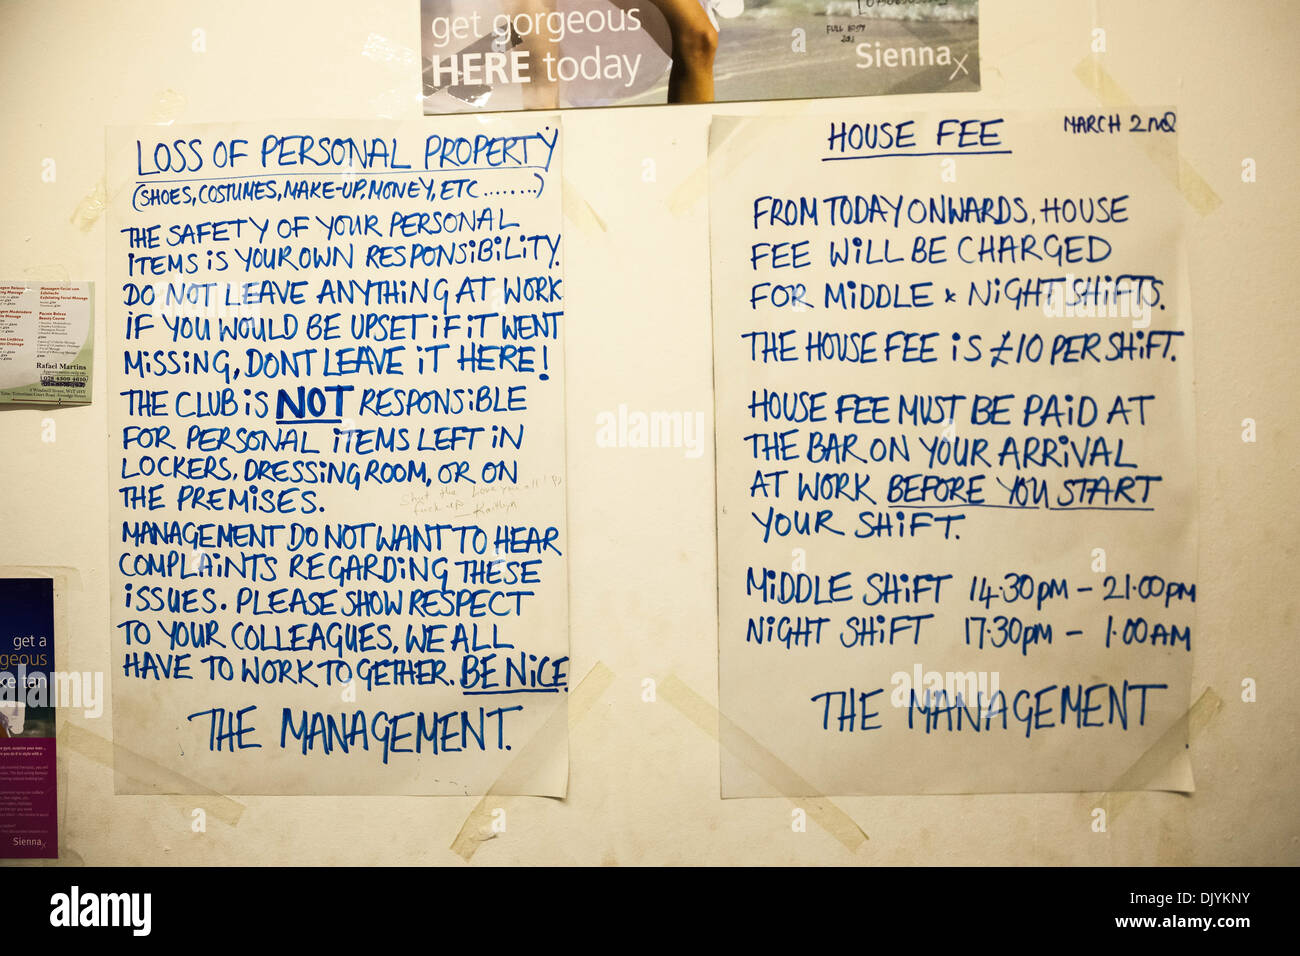 get gorgeous
HERE today
FULL BODY
Sienna x
LOSS OF PERSONAL PROPERTY
(SHOES, COSTUMES, MAKE-UP, MONEY, ETC ........)
THE SAFETY OF YOUR PERSONAL
ITEMS IS YOUR OWN RESPONSIBILITY.
DO NOT LEAVE ANYTHING AT WORK
IF YOU WOULD BE UPSET IF IT WENT
MISSING, DONT LEAVE IT HERE!
THE CLUB IS NOT RESPONSIBLE
FOR PERSONAL ITEMS LEFT IN
LOCKERS, DRESSING ROOM, OR ON
THE PREMISES.
Shut the Love you all!
fuck up Kaitlyn
MANAGEMENT DO NOT WANT TO HEAR
COMPLAINTS REGARDING THESE
ISSUES. PLEASE SHOW RESPECT
TO YOUR COLLEAGUES, WE ALL
HAVE TO WORK TOGETHER. BE NICE.
THE MANAGEMENT.
HOUSE FEE MARCH 2ND
FROM TODAY ONWARDS, HOUSE
FEE WILL BE CHARGED
FOR MIDDLE & NIGHT SHIFTS.
THE HOUSE FEE IS £10 PER SHIFT.
HOUSE FEE MUST BE PAID AT
THE BAR ON YOUR ARRIVAL
AT WORK BEFORE YOU START
YOUR SHIFT.
MIDDLE SHIFT 14.30PM - 21.00PM
NIGHT SHIFT 17.30PM - 1.00AM
THE MANAGEMENT
Rafael Martins
get a
geous
ke tan
Sienna x
alamy
alamy stock photo
Image ID: DJYKNY
www.alamy.com